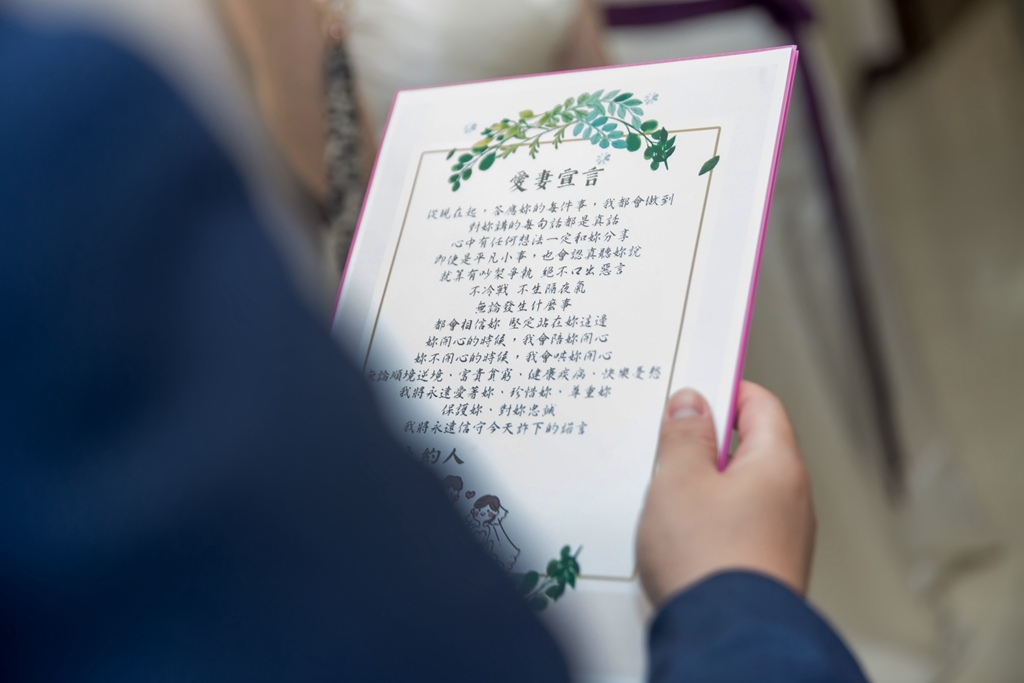 愛妻宣言
從現在起，答應妳的每件事，我都會做到
對妳講的每句話都是真話
心中有任何想法一定和妳分享
即使是平凡小事，也會認真聽妳說
就算有吵架爭執 絕不口出惡言
不冷戰 不生隔夜氣
無論發生什麼事
都會相信妳 堅定站在妳這邊
妳開心的時候，我會陪妳開心
妳不開心的時候，我會哄妳開心
論順境逆境、富貴貧窮、健康疾病、快樂憂愁
我將永遠愛著妳、珍惜妳、尊重妳
保護妳、對妳忠誠
我將永遠信守今天許下的諾言
約人